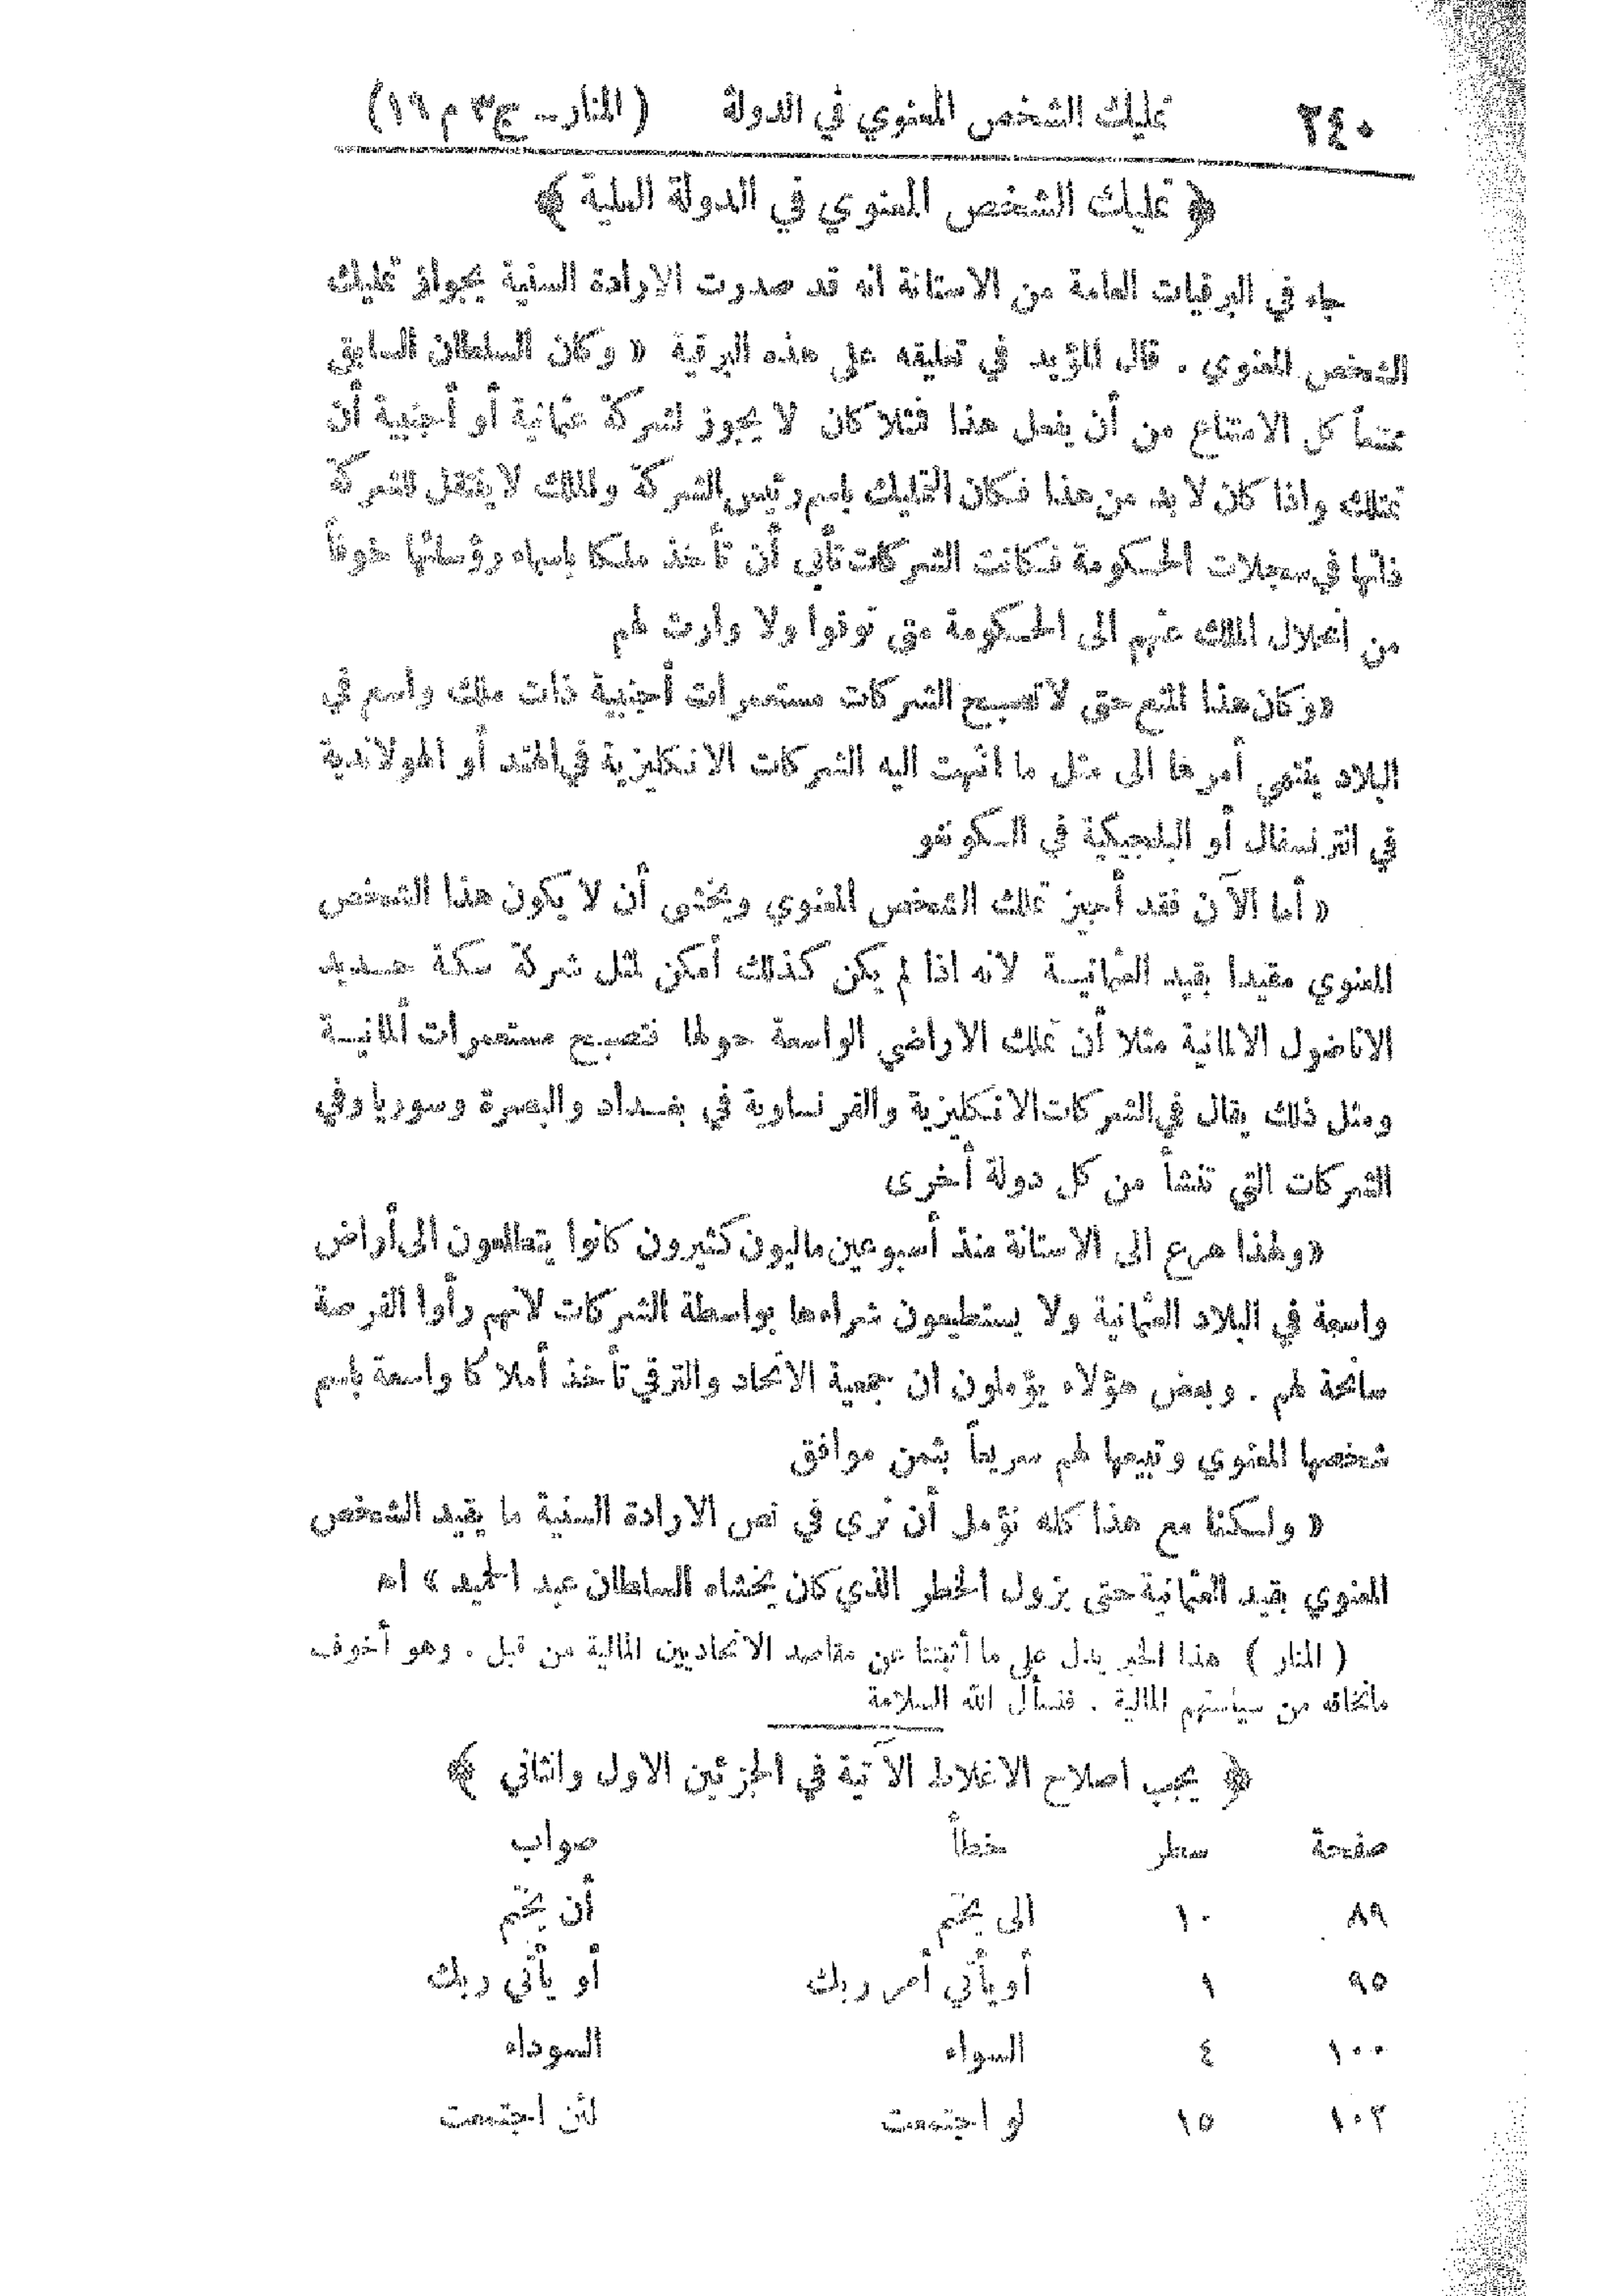 ٢٤٠ تمليك الشخص المعنوي في الدولة ( المنار ـ ج ٣ م ١٦)
﴿ تمليك الشخص المعنوي في الدولة العلية ﴾
جاء في البرقيات العامة من الاستانة انه قد صدرت الارادة السنية بجواز تمليك
الشخص المعنوي . قال المؤيد في تعليقه على هذه البرقية « وكان السلطان السابق
ممتنعاً كل الامتناع من أن يفعل هذا فمثلا كان لا يجوز لشركة عثمانية أو أجنبية أن
تمتلك واذا كان لا بد من هذا فكان التمليك باسم رئيس الشركة والملك لا ينتقل للشركة
ذاتها في سجلات الحكومة فكانت الشركات تأبى أن تأخذ ملكا باسماء رؤسائها خوفاً
من انحلال الملك عنهم الى الحكومة متى توفوا ولا وارث لهم
«وكان هذا المنع حتى لا تصبح الشركات مستعمرات أجنبية ذات ملك واسع في
البلاد ينتهي أمرها الى مثل ما انتهت اليه الشركات الانكليزية في الهند أو الهولاندية
في الترنسفال أو البلجيكية في الكونغو
« أما الآن فقد أجيز تملك الشخص المعنوي ويخشى أن لا يكون هذا الشخص
المعنوي مقيدا بقيد العثمانية لانه اذا لم يكن كذلك أمكن لمثل شركة سكة حديد
الاناضول الالمانية مثلا أن تملك الاراضي الواسعة حولها فتصبح مستعمرات ألمانية
ومثل ذلك يقال في الشركات الانكليزية والفرنساوية في بغداد والبصرة وسوريا وفي
الشركات التي تنشأ من كل دولة أخرى
«ولهذا هرع الى الاستانة منذ أسبوعين ماليون كثيرون كانوا يتطلعون الى أراض
واسعة في البلاد العثمانية ولا يستطيعون شراءها بواسطة الشركات لانهم رأوا الفرصة
سانحة لهم . وبعض هؤلاء يؤملون ان جمعية الاتحاد والترقي تأخذ أملاكا واسعة باسم
شخصها المعنوي وتبيعها لهم سريعاً بثمن موافق
« ولكننا مع هذا كله نؤمل أن نرى في نص الارادة السنية ما يقيد الشخص
المعنوي بقيد العثمانية حتى يزول الخطر الذي كان يخشاه السلطان عبد الحميد » اه
( المنار ) هذا الخبر يدل على ما أثبتنا عن مقاصد الاتحاديين المالية من قبل . وهو أخوف
مانخافه من سياستهم المالية . فنسأل الله السلامة
﴿ يجب اصلاح الاغلاط الآتية في الجزئين الاول والثاني ﴾
صفحة سطر خطأ صواب
٨٩ ١٠ الى يختم أن يختم
٩٥ ١ أو يأتي أمر ربك أو يأتي ربك
١٠٠ ٤ السواء السوداء
١٠٢ ١٥ لو اجتمعت لئن اجتمعت